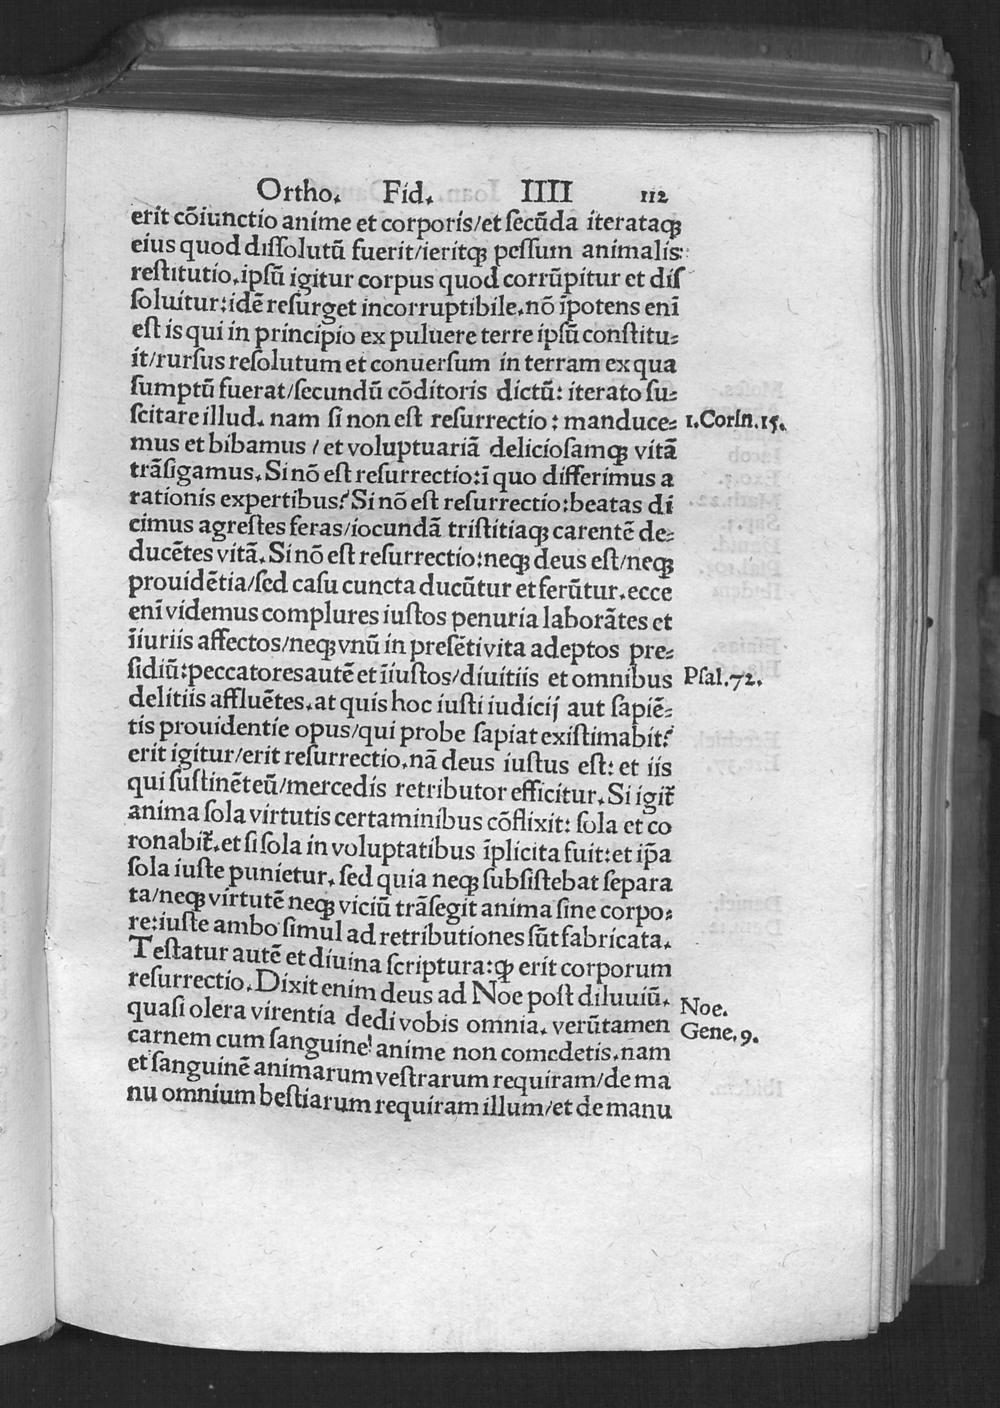 Ortho. Fid. IIII 112
erit cõiunctio anime et corporis/et secũda iterataqꝫ
eius quod dissolutũ fuerit/ieritqꝫ pessum animalis:
restitutio.ipsũ igitur corpus quod corrũpitur et dis
soluitur:idẽ resurget incorruptibile.nõ ĩpotens enĩ
est is qui in principio ex puluere terre ipsũ constitu⸗
it/rursus resolutum et conuersum in terram ex qua
sumptũ fuerat/secundũ cõditoris dictũ: iterato su⸗
scitare illud. nam si non est resurrectio: manduce⸗ 1.Corin.15.
mus et bibamus / et voluptuariã deliciosamqꝫ vitã
trãsigamus. Si nõ est resurrectio:ĩ quo differimus a
rationis expertibus? Si nõ est resurrectio:beatas di
cimus agrestes feras/iocundã tristitiaqꝫ carentẽ de⸗
ducẽtes vitã. Si nõ est resurrectio:neqꝫ deus est/neqꝫ
prouidẽtia/sed casu cuncta ducũtur et ferũtur.ecce
enĩ videmus complures iustos penuria laborãtes et
ĩiuriis affectos/neqꝫ vnũ in presẽti vita adeptos pre⸗
sidiũ:peccatores autẽ et ĩiustos/diuitiis et omnibus Psal.72.
delitiis affluẽtes.at quis hoc iusti iudicij aut sapiẽ⸗
tis prouidentie opus/qui probe sapiat existimabit?
erit igitur/erit resurrectio.nã deus iustus est: et iis
qui sustinẽt eũ/mercedis retributor efficitur. Si igit̃
anima sola virtutis certaminibus cõflixit: sola et co
ronabit̃.et si sola in voluptatibus ĩplicita fuit:et ip̃a
sola iuste punietur. sed quia neqꝫ subsistebat separa
ta/neqꝫ virtutẽ neqꝫ viciũ trãsegit anima sine corpo⸗
re:iuste ambo simul ad retributiones sũt fabricata.
Testatur autẽ et diuina scriptura:ꝙ erit corporum
resurrectio. Dixit enim deus ad Noe post diluuiũ. Noe.
quasi olera virentia dedi vobis omnia. verũtamen Gene.9.
carnem cum sanguine! anime non comedetis.nam
et sanguinẽ animarum vestrarum requiram/de ma
nu omnium bestiarum requiram illum/et de manu